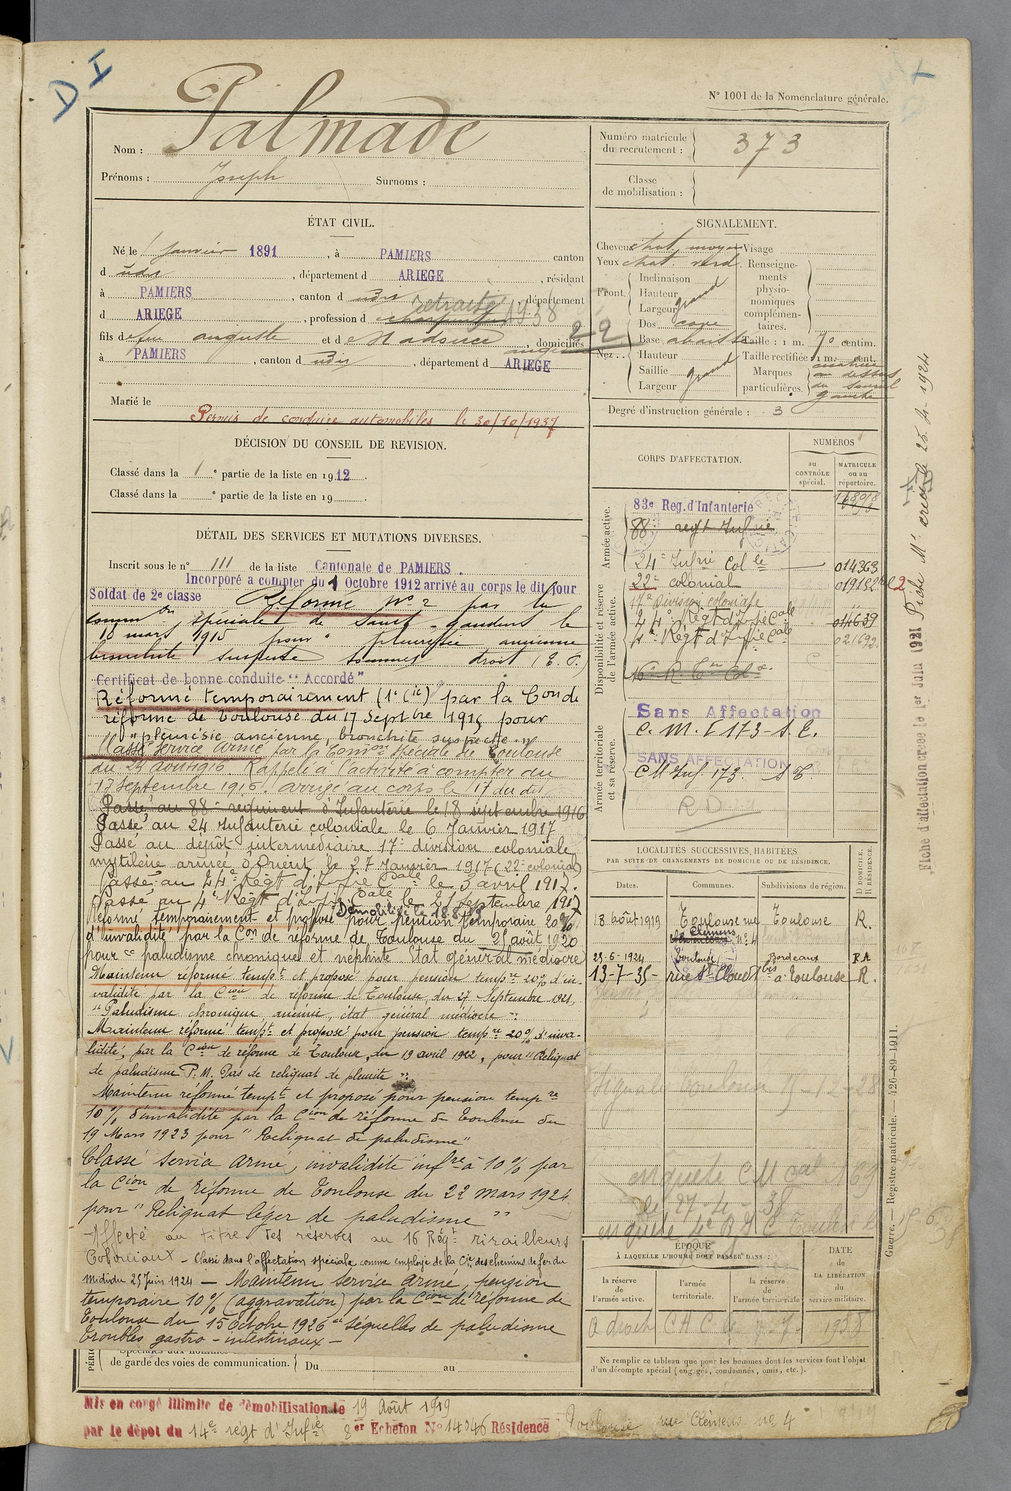 D I
N° 1001 de la Nomenclature générale.
Nom : Palmade
Prénoms : Joseph Surnoms :
Numéro matricule du recrutement : 373
Classe de mobilisation :
ÉTAT CIVIL.
Né le 1 janvier 1891, à PAMIERS canton
d udis, département d ARIEGE, résidant
à PAMIERS, canton d udis, département
d ARIEGE, profession d retraité 1938
fils de feu auguste et de, domiciliés
à PAMIERS, canton d udis, département d ARIEGE
Marié le
Permis de conduire automobiles le 30/10/1937
SIGNALEMENT.
Cheveux chat. moyen Visage
Yeux chat. verd
Front. Inclinaison
Hauteur
Largeur grand
Nez. Dos cave
Base abaissé
Hauteur
Saillie grand
Largeur
Renseignements physionomiques complémentaires.
Taille : 1 m. 70 centim.
Taille rectifiée 1 m. cent.
Marques particulières. cicatrice au dessus du sourcil gauche
Degré d'instruction générale : 3
DÉCISION DU CONSEIL DE REVISION.
Classé dans la 1e partie de la liste en 1912.
Classé dans la e partie de la liste en 19
DÉTAIL DES SERVICES ET MUTATIONS DIVERSES.
Inscrit sous le n° 111 de la liste Cantonale de PAMIERS.
Incorporé à compter du 1 Octobre 1912 arrivé au corps le dit jour
Soldat de 2e classe Réformé n° 2 par la
comm on spéciale de Saint-Gaudens le
18 mars 1915 pour " pleurésie ancienne
bronchite suspecte sommet droit (E. P.)
Certificat de bonne conduite "Accordé"
Réformé temporairement (1e Cie) par la Con de
réforme de Toulouse du 17 Septbre 1915 pour
"pleurésie ancienne, bronchite suspecte"
Classé service armé par la Comon spéciale de Toulouse
du 24 août 1916 Rappelé à l'activité à compter du
17 Septembre 1916. arrivé au corps le 17 du dit
Passé au 88e regiment d'Infanterie le 18 septembre 1916
Passé au 24 Infanterie coloniale le 6 Janvier 1917
Passé au dépôt intermédiaire 17e division coloniale
mytilène armée d'Orient le 27 Janvier 1917 (22e colonial)
Passé au 44e Régt d'Infie Cale le 3 avril 1917.
Passé au 4e Régt d'Infie Cale le 21 Septembre 1917
Démobilisé le 18.8.19
Réformé temporairement et proposé pour pention temporaire 20%
d'invalidité par la Con de réforme de Toulouse du 21 août 1920
pour "paludisme chronique et néphrite Etat général médiocre
Maintenu réformé tempt et proposé pour pension tempre 20% d'in-
validité par la Cion de réforme de Toulouse, du 27 Septembre 1921,
"Paludisme chronique, anémie, état général médiocre"
Maintenu réformé tempt et proposé pour pension tempre 20% d'inva-
lidité, par la Cion de réforme de Toulouse, du 19 avril 1922, pour "Reliquat
de paludisme P. M. Pas de reliquat de pleurite"
Maintenu réformé tempt et proposé pour pension tempre
10% d'invalidité par la Cion de réforme de Toulouse du
19 Mars 1923 pour "Reliquat de paludisme"
Classé Service armé, invalidité infre à 10% par
la Cion de réforme de Toulouse du 22 mars 1924
pour "Reliquat léger de paludisme"
Affecté au titre des réserves au 16 Régt Tirailleurs
Coloniaux - Classé dans l'affectation spéciale comme employé de la Cie des chemins de fer du
midi du 25 Juin 1924 - Maintenu service armé, pension
temporaire 10% (aggravation) par la Cion de réforme de
Toulouse du 15 octobre 1926 "séquelles de paludisme
troubles gastro-intestinaux -
de garde des voies de communication. Du au
CORPS D'AFFECTATION.
NUMÉROS
au CONTRÔLE spécial.
MATRICULE ou au répertoire.
Armée active.
83e Reg.d'Infanterie
88e regt Infrie
24e Infrie Colle 014363
22e colonial 019182
Disponibilité et réserve de l'armée active.
17e Division coloniale
44e Régt d'Infie Cale 04639
4e Régt d'Infie Cale 021692
16e R. Ten Col.
Armée territoriale et sa réserve.
Sans Affectation
C. M. I 173 - S. E.
SANS AFFECTATION
C M Inf. 173.
Fiche d'affectation créée le 1er Juin 1921
LOCALITÉS SUCCESSIVES HABITÉES
PAR SUITE DE CHANGEMENTS DE DOMICILE OU DE RÉSIDENCE.
Dates. Communes. Subdivisions de région. D DOMICILE. R RÉSIDENCE.
18 août 1919 Toulouse rue Clémens n° 4 Toulouse R.
23-6-1924 Toulouse Bordeaux R.A
13-7-35 rue St Cloud à Toulouse R.
ÉPOQUE
À LAQUELLE L'HOMME DOIT PASSER DANS :
la réserve de l'armée active.
l'armée territoriale.
la réserve de l'armée territoriale
DATE de LA LIBÉRATION du service militaire.
1938
Ne remplir ce tableau que pour les hommes dont les services font l'objet
d'un décompte spécial (engagés, condamnés, omis, etc.).
Guerre. — Registre matricule. — 426-89-1911.
Mis en congé illimité de démobilisation le 19 Août 1919
par le dépôt du 14e régt d'Infie 8er Echelon N° 14346 Résidence Toulouse rue Clémens no 4